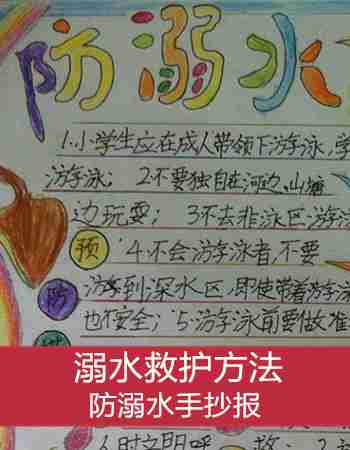 防溺水
1.小学生应在成人带领下游泳,学
游泳; 2不要独自在河边、山塘
边玩耍; 3不去非泳区游泳
预
4.不会游泳者,不要
防
游泳到深水区,即使带着游泳
也不安全; 5.游泳前要做准
溺水救护方法
防溺水手抄报